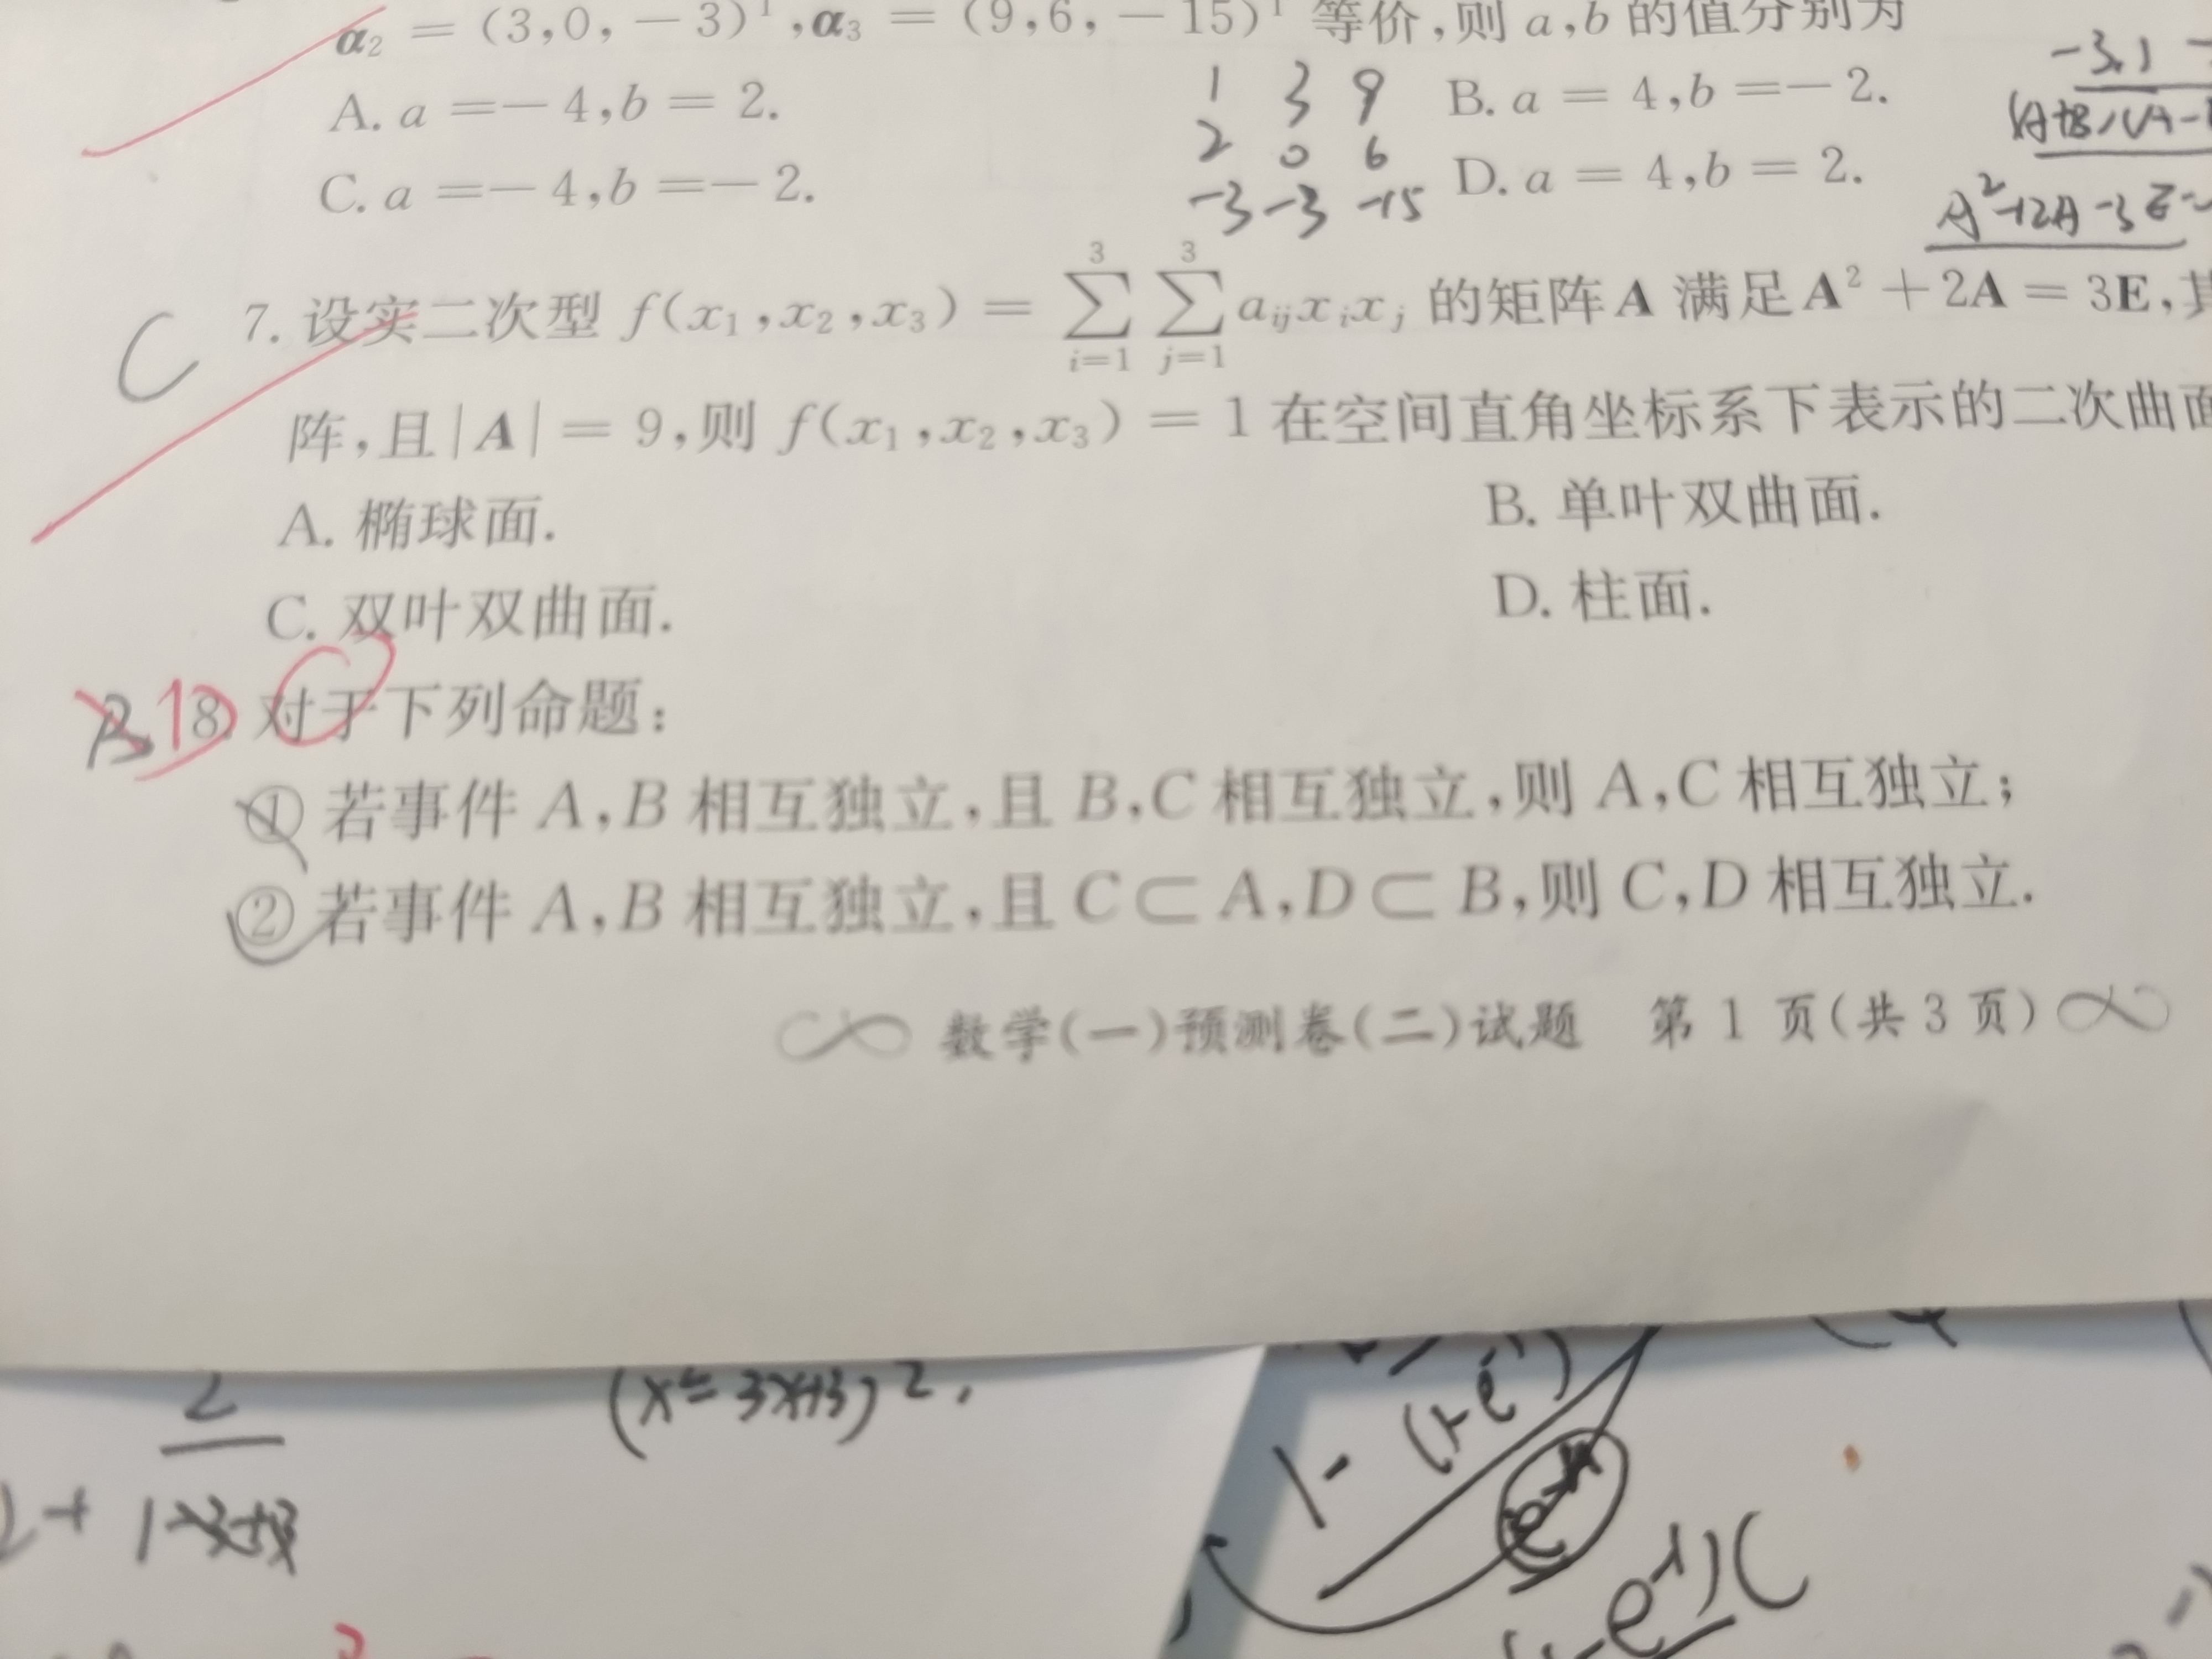 α₂ = (3,0,－3)ᵀ,α₃ = (9,6,－15)ᵀ 等价,则 a,b 的值分别为
A. a =－4,b = 2.
B. a = 4,b =－2.
C. a =－4,b =－2.
D. a = 4,b = 2.
1 3 9
2 0 6
-3 -3 -15
-3,1
A²+2A-3E
C
7. 设实二次型 f(x₁,x₂,x₃) = ∑_{i=1}^{3} ∑_{j=1}^{3} a_{ij}x_ix_j 的矩阵 A 满足 A² + 2A = 3E,其
阵,且|A| = 9,则 f(x₁,x₂,x₃) = 1 在空间直角坐标系下表示的二次曲面
A. 椭球面.
B. 单叶双曲面.
C. 双叶双曲面.
D. 柱面.
B 8. 对于下列命题:
① 若事件 A,B 相互独立,且 B,C 相互独立,则 A,C 相互独立;
② 若事件 A,B 相互独立,且 C⊂A,D⊂B,则 C,D 相互独立.
数学(一)预测卷(二)试题 第 1 页(共 3 页)
(x²-3x+3)²,